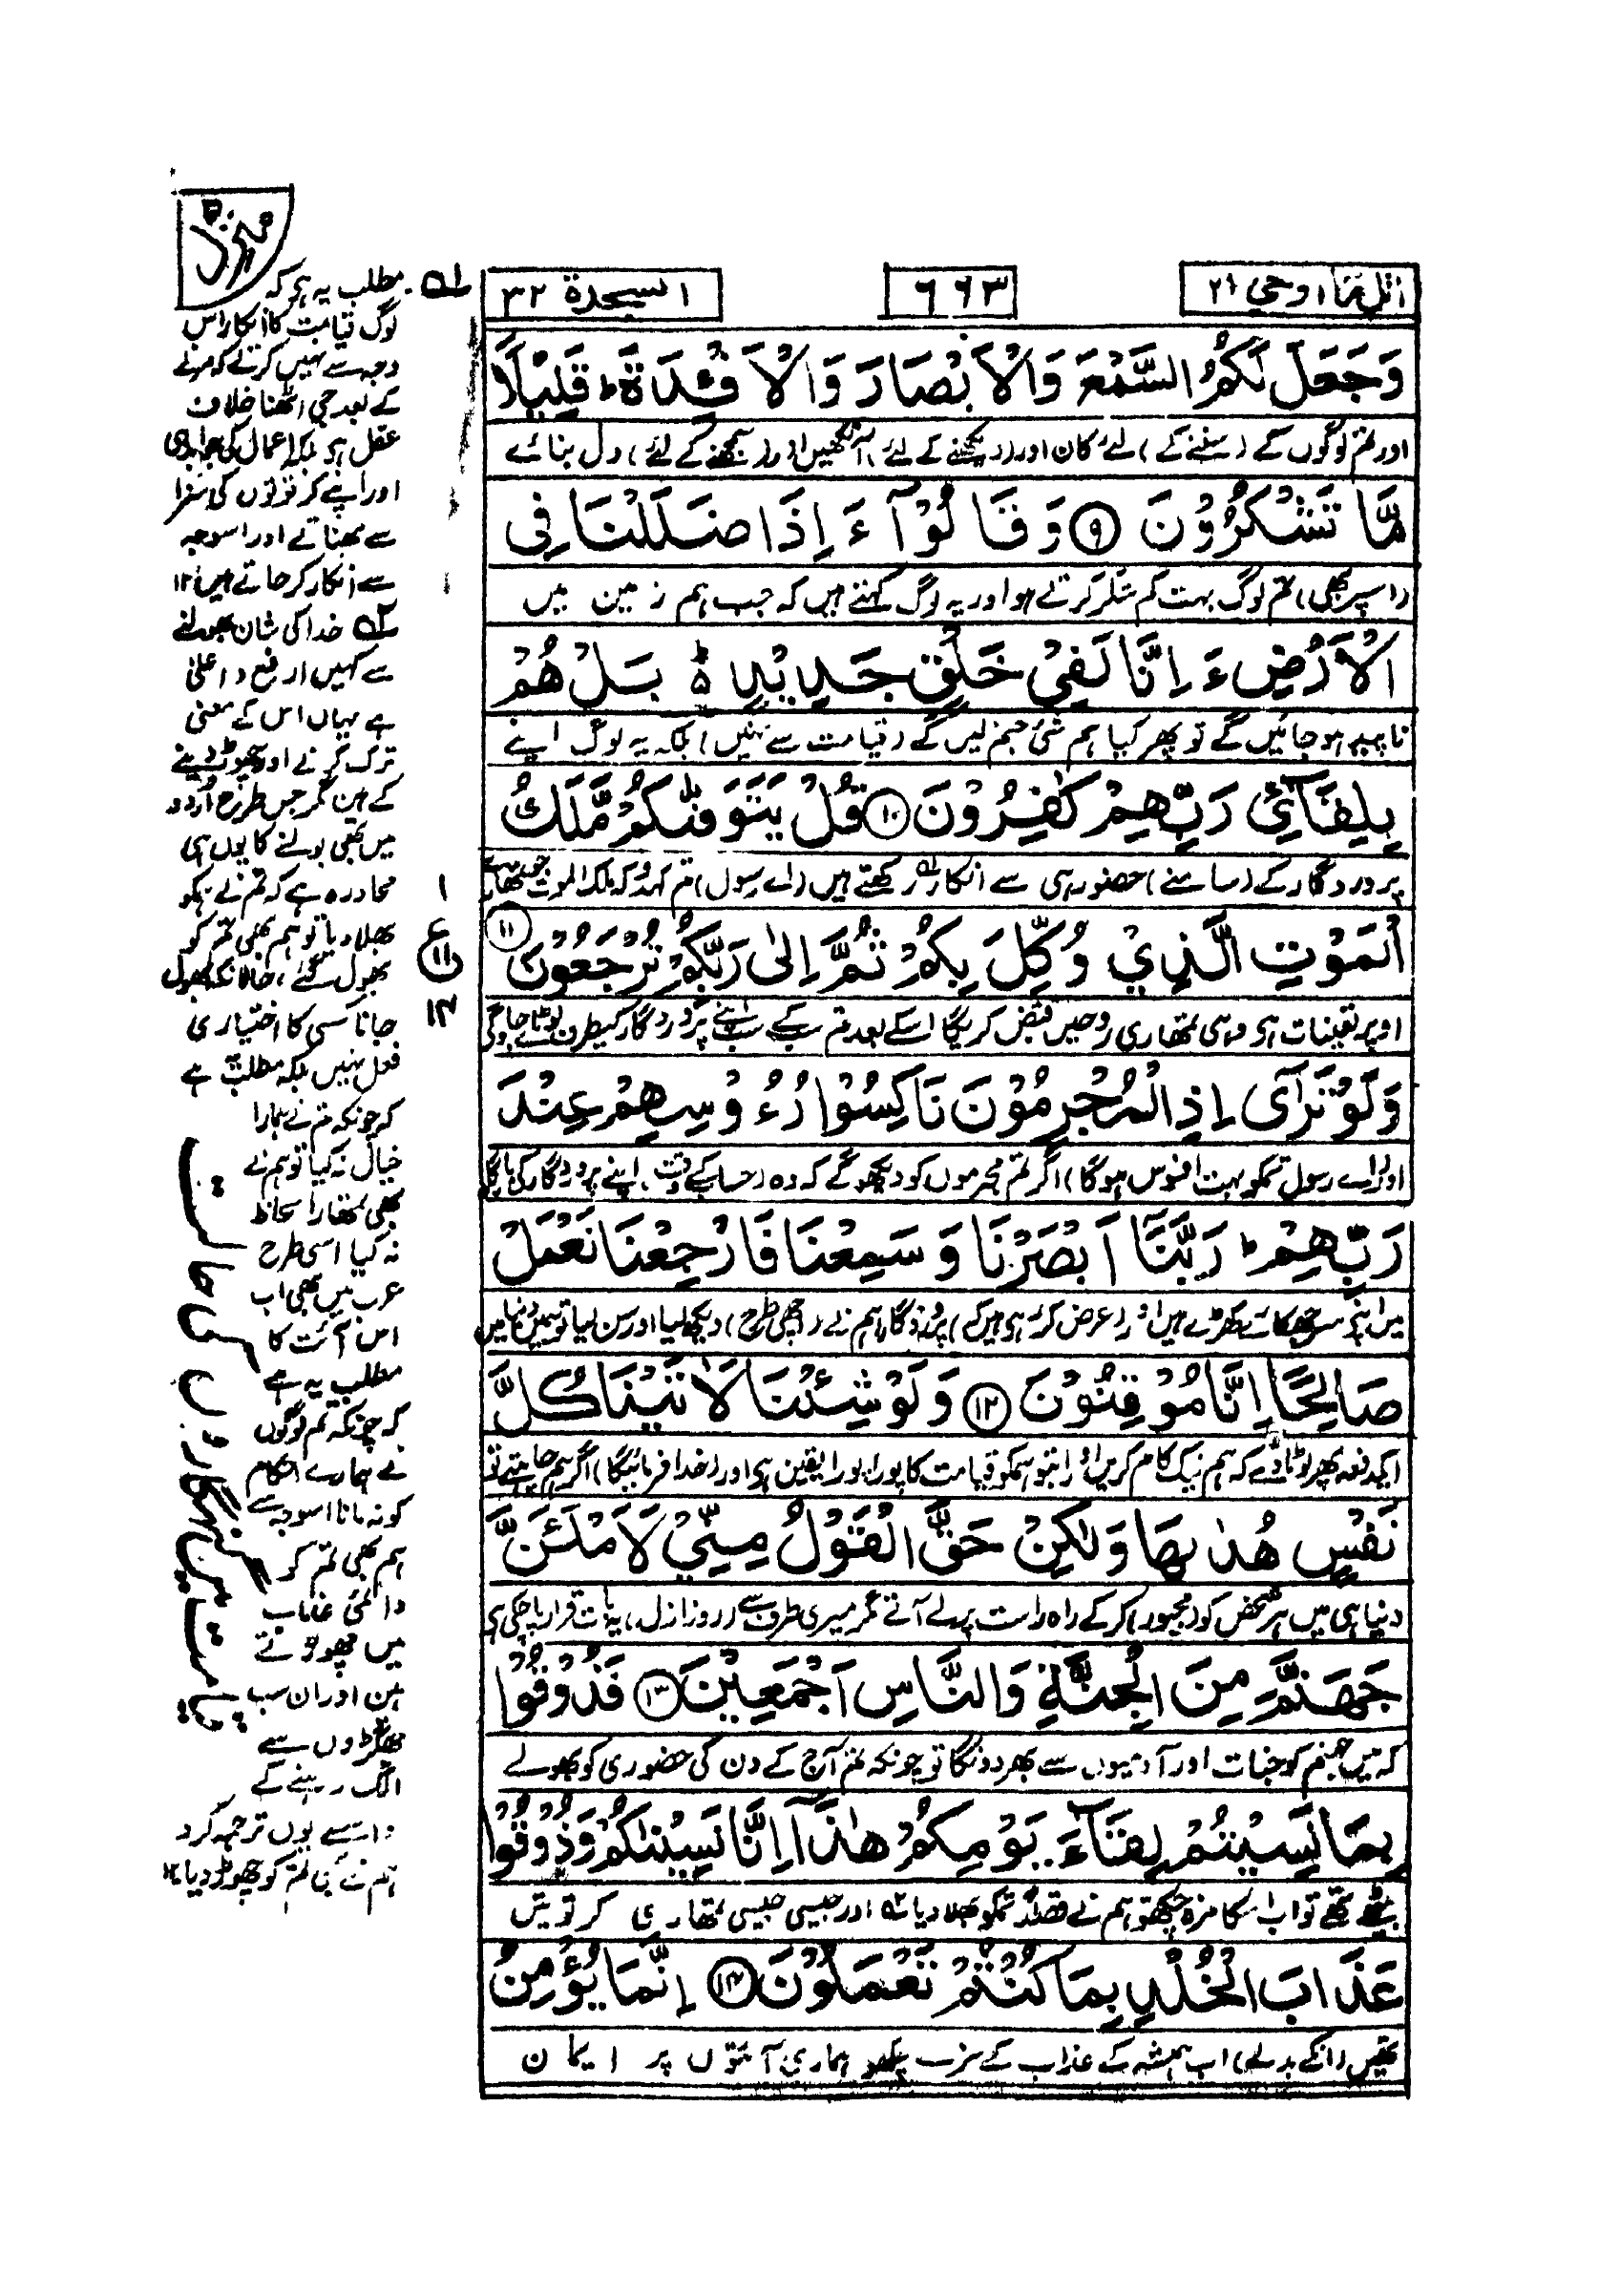 اتل ما اوحي ٢١
٦٦٣
السجدة ٣٢
وَجَعَلَ لَكُمُ السَّمْعَ وَالْاَبْصَارَ وَالْاَفْـِٕدَةَ ؕ قَلِيْلًا
اور تم لوگوں کے (سننے کے) لئے کان اور (دیکھنے کے لئے) آنکھیں اور (سمجھنے کے لئے) دل بنائے
مَّا تَشْكُرُوْنَ ⑨ وَقَالُوْٓا ءَاِذَا ضَلَلْنَا فِی
(اسپر بھی) تم لوگ بہت کم شکر کرتے ہو اور یہ لوگ کہتے ہیں کہ جب ہم زمین میں
الْاَرْضِ ءَاِنَّا لَفِيْ خَلْقٍ جَدِيْدٍ ۬ؕ بَلْ هُمْ
ناپید ہو جائیں گے تو پھر کیا ہم نئی جنم لیں گے (قیامت سے نہیں) بلکہ یہ لوگ اپنے
بِلِقَآئِ رَبِّهِمْ كٰفِرُوْنَ ⑩ قُلْ يَتَوَفّٰىكُمْ مَّلَكُ
پروردگار کے (سامنے) حضوری سے انکار رکھتے ہیں (اے رسول) تم کہدو کہ ملک الموت جو تمھارے
الْمَوْتِ الَّذِيْ وُكِّلَ بِكُمْ ثُمَّ اِلٰى رَبِّكُمْ تُرْجَعُوْنَ ⑪
اوپر تعینات ہی وہی تمھاری روحیں قبض کریگا اسکے بعد تم سب کے سب اپنے پروردگار کیطرف لوٹائے جاؤ گے
وَلَوْ تَرٰٓى اِذِ الْمُجْرِمُوْنَ نَاكِسُوْا رُءُوْسِهِمْ عِنْدَ
اور (اے رسول تمکو بہت افسوس ہوگا) اگر تم مجرموں کو دیکھو گے کہ وہ (حساب کے وقت) اپنے پروردگار کی بارگاہ
رَبِّهِمْ ؕ رَبَّنَآ اَبْصَرْنَا وَسَمِعْنَا فَارْجِعْنَا نَعْمَلْ
میں اپنے سر جھکائے کھڑے ہیں اور (عرض کر رہے ہیں کہ) پروردگارا ہم نے (اچھی طرح) دیکھ لیا اور سن لیا تو ہمیں دنیا میں
صَالِحًا اِنَّا مُوْقِنُوْنَ ⑫ وَلَوْ شِئْنَا لَاٰتَيْنَا كُلَّ
ایکدفعہ پھر لوٹا دے کہ ہم نیک کام کریں اور ابتو ہمکو قیامت کا پورا پورا یقین ہی اور (خدا فرمائیگا) اگر ہم چاہتے تو
نَفْسٍ هُدٰىهَا وَلٰكِنْ حَقَّ الْقَوْلُ مِنِّيْ لَاَمْلَئَنَّ
دنیا ہی میں ہر شخص کو (مجبور) کر کے راہ راست پر لے آتے مگر میری طرف سے (روز ازل) یہ بات قرار پا چکی ہی
جَهَنَّمَ مِنَ الْجِنَّةِ وَالنَّاسِ اَجْمَعِيْنَ ⑬ فَذُوْقُوْا
کہ میں جہنم کو جنات اور آدمیوں سے بھر دونگا تو چونکہ تم آج کے دن کی حضوری کو بھولے
بِمَا نَسِيْتُمْ لِقَآءَ يَوْمِكُمْ هٰذَا ۚ اِنَّا نَسِيْنٰكُمْ وَذُوْقُوْا
بیٹھے تھے تو اب اسکا مزہ چکھو ہم نے قصداً تمکو بھلا دیا ۲ه اور جیسی جیسی تمھاری کرتوتیں
عَذَابَ الْخُلْدِ بِمَا كُنْتُمْ تَعْمَلُوْنَ ⑭ اِنَّمَا يُؤْمِنُ
تھیں (انکے بدلے) اب ہمیشہ کے عذاب کے مزے چکھو ہماری آیتوں پر ایمان
منزل ٥
۱ه مطلب یہ ہی کہ
لوگ قیامت کا انکار اس
وجہ سے نہیں کرتے کہ مرنے
کے بعد جی اٹھنا خلاف
عقل ہی بلکہ اعمال کی جوابدہی
اور اپنے کرتوتوں کی سزا
سے بھناتے اور اسوجہ
سے انکار کر جاتے ہیں ۱۲
۲ه خدا کی شان بھولنے
سے کہیں ارفع و اعلیٰ
ہے یہاں اس کے معنی
ترک کرنے اور چھوڑ دینے
کے ہیں مگر جس طرح اُردو
میں بھی بولنے کا یوں ہی
محاورہ ہے کہ تم نے ہمکو
بھلا دیا تو ہم بھی تم کو
بھول گئے ، حالانکہ بھول
جانا کسی کا اختیاری
فعل نہیں بلکہ مطلب ہے
کہ چونکہ تم نے ہمارا
خیال نہ کیا تو ہم نے
بھی تمھارا لحاظ
نہ کیا اسی طرح
عرب میں بھی اب
اس آئت کا
مطلب یہ ہے
کہ چونکہ تم لوگوں
نے ہمارے احکام
کو نہ مانا اسوجہ سے
ہم بھی تم کو
دائمی عذاب
میں چھوڑتے
ہیں اور ان سب
جھگڑوں سے
الگ رہنے کے
واسطے یوں ترجمہ کرد
ہم نے بھی تم کو چھوڑ دیا ۱۲
۱
ع
۱۱
۱۴
قیامت میں گنہگاروں کی حالت